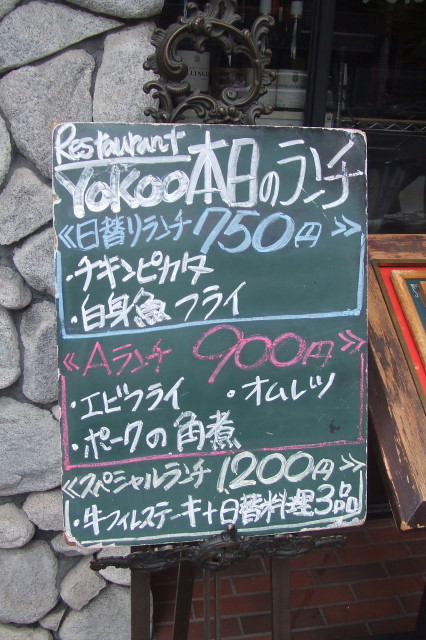 Restaurant
YoKoo 本日のランチ
≪日替りランチ 750円≫
・チキンピカタ
・白身魚フライ
≪Aランチ 900円≫
・エビフライ ・オムレツ
・ポークの角煮
≪スペシャルランチ 1200円≫
・牛フィレステーキ+日替料理3品